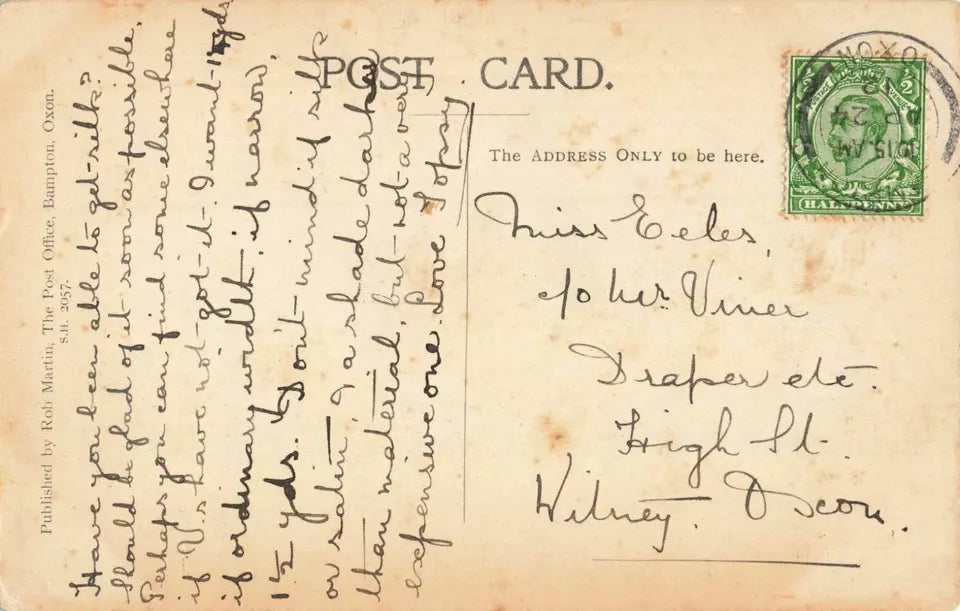 POST CARD.
The ADDRESS ONLY to be here.
Published by Rob Martin, The Post Office, Bampton, Oxon.
S.H. 2057.
Have you been able to get silk?
Should be glad of it soon as possible.
Perhaps you can find some elsewhere
if V.s have not got it. I want 1¼ yds
if ordinary width, if narrow,
1½ yds. Don't mind if silk
or satin, & a shade darker
than material, but not a very
expensive one. Love Topsy
Miss Eeles,
c/o Mr. Viner
Draper etc.
High St.
Witney. Oxon.
OXON
10.15 AM
24
½ ½
POSTAGE REVENUE
HALFPENNY